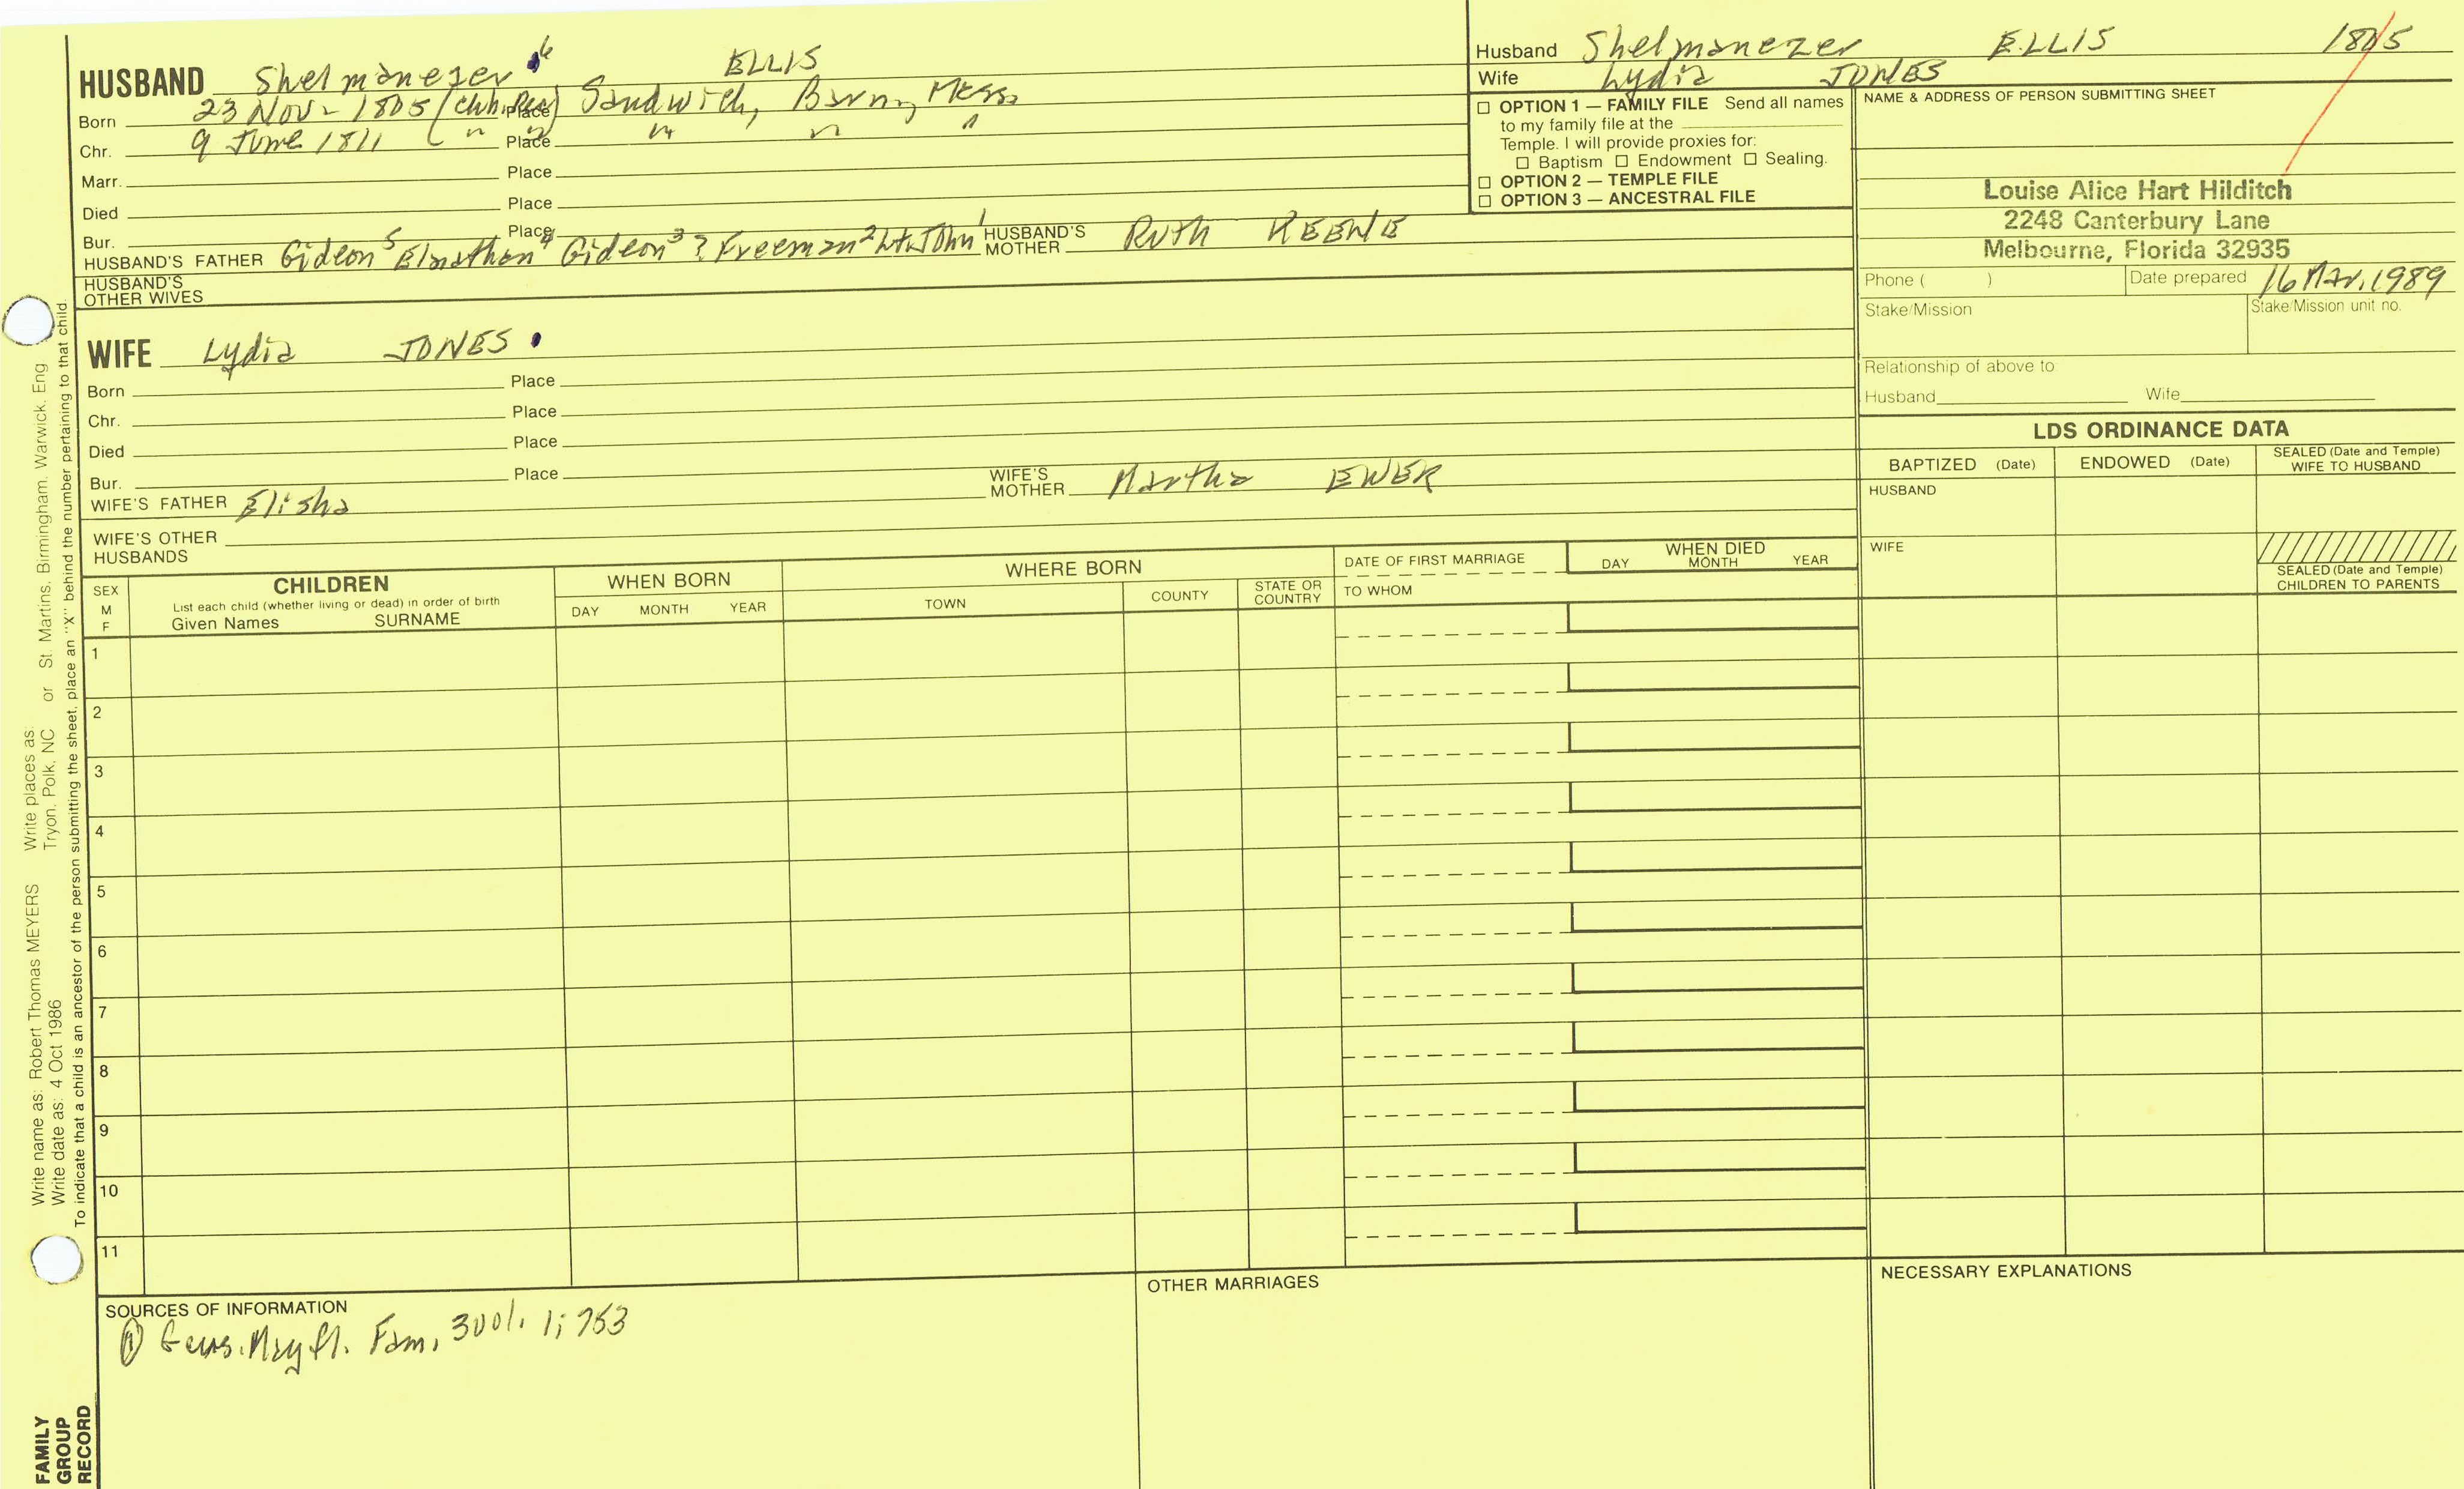 HUSBAND Shelmanezer 6 ELLIS
Born 23 Nov - 1805 (Chh. Rec) Place Sandwich, Barn, Mass.
Chr. 9 June 1811 ( " " Place " " "
Marr. Place
Died Place
Bur. Place
HUSBAND'S FATHER Gideon 5 Elnathan 4 Gideon 3 ? Freeman 2 Lt. John 1 HUSBAND'S MOTHER Ruth KEENE
HUSBAND'S OTHER WIVES
WIFE Lydia JONES
Born Place
Chr. Place
Died Place
Bur. Place
WIFE'S FATHER Elisha WIFE'S MOTHER Martha EWER
WIFE'S OTHER HUSBANDS
Husband Shelmanezer ELLIS 1805
Wife Lydia JONES
OPTION 1 — FAMILY FILE Send all names
to my family file at the
Temple. I will provide proxies for:
Baptism Endowment Sealing.
OPTION 2 — TEMPLE FILE
OPTION 3 — ANCESTRAL FILE
NAME & ADDRESS OF PERSON SUBMITTING SHEET
Louise Alice Hart Hilditch
2248 Canterbury Lane
Melbourne, Florida 32935
Phone ( ) Date prepared 16 Mar. 1989
Stake/Mission Stake/Mission unit no.
Relationship of above to
Husband Wife
LDS ORDINANCE DATA
BAPTIZED (Date) ENDOWED (Date) SEALED (Date and Temple) WIFE TO HUSBAND
HUSBAND
WIFE
SEALED (Date and Temple)
CHILDREN TO PARENTS
SEX
M
F
CHILDREN
List each child (whether living or dead) in order of birth
Given Names SURNAME
WHEN BORN
DAY MONTH YEAR
WHERE BORN
TOWN COUNTY STATE OR COUNTRY
DATE OF FIRST MARRIAGE
TO WHOM
WHEN DIED
DAY MONTH YEAR
1
2
3
4
5
6
7
8
9
10
11
SOURCES OF INFORMATION
① Gens. Mayfl. Fam, 300/. 1; 753
OTHER MARRIAGES
NECESSARY EXPLANATIONS
Write name as: Robert Thomas MEYERS Write places as:
Write date as: 4 Oct 1986 Tryon, Polk, NC or St. Martins, Birmingham, Warwick, Eng
To indicate that a child is an ancestor of the person submitting the sheet, place an "X" behind the number pertaining to that child.
FAMILY
GROUP
RECORD